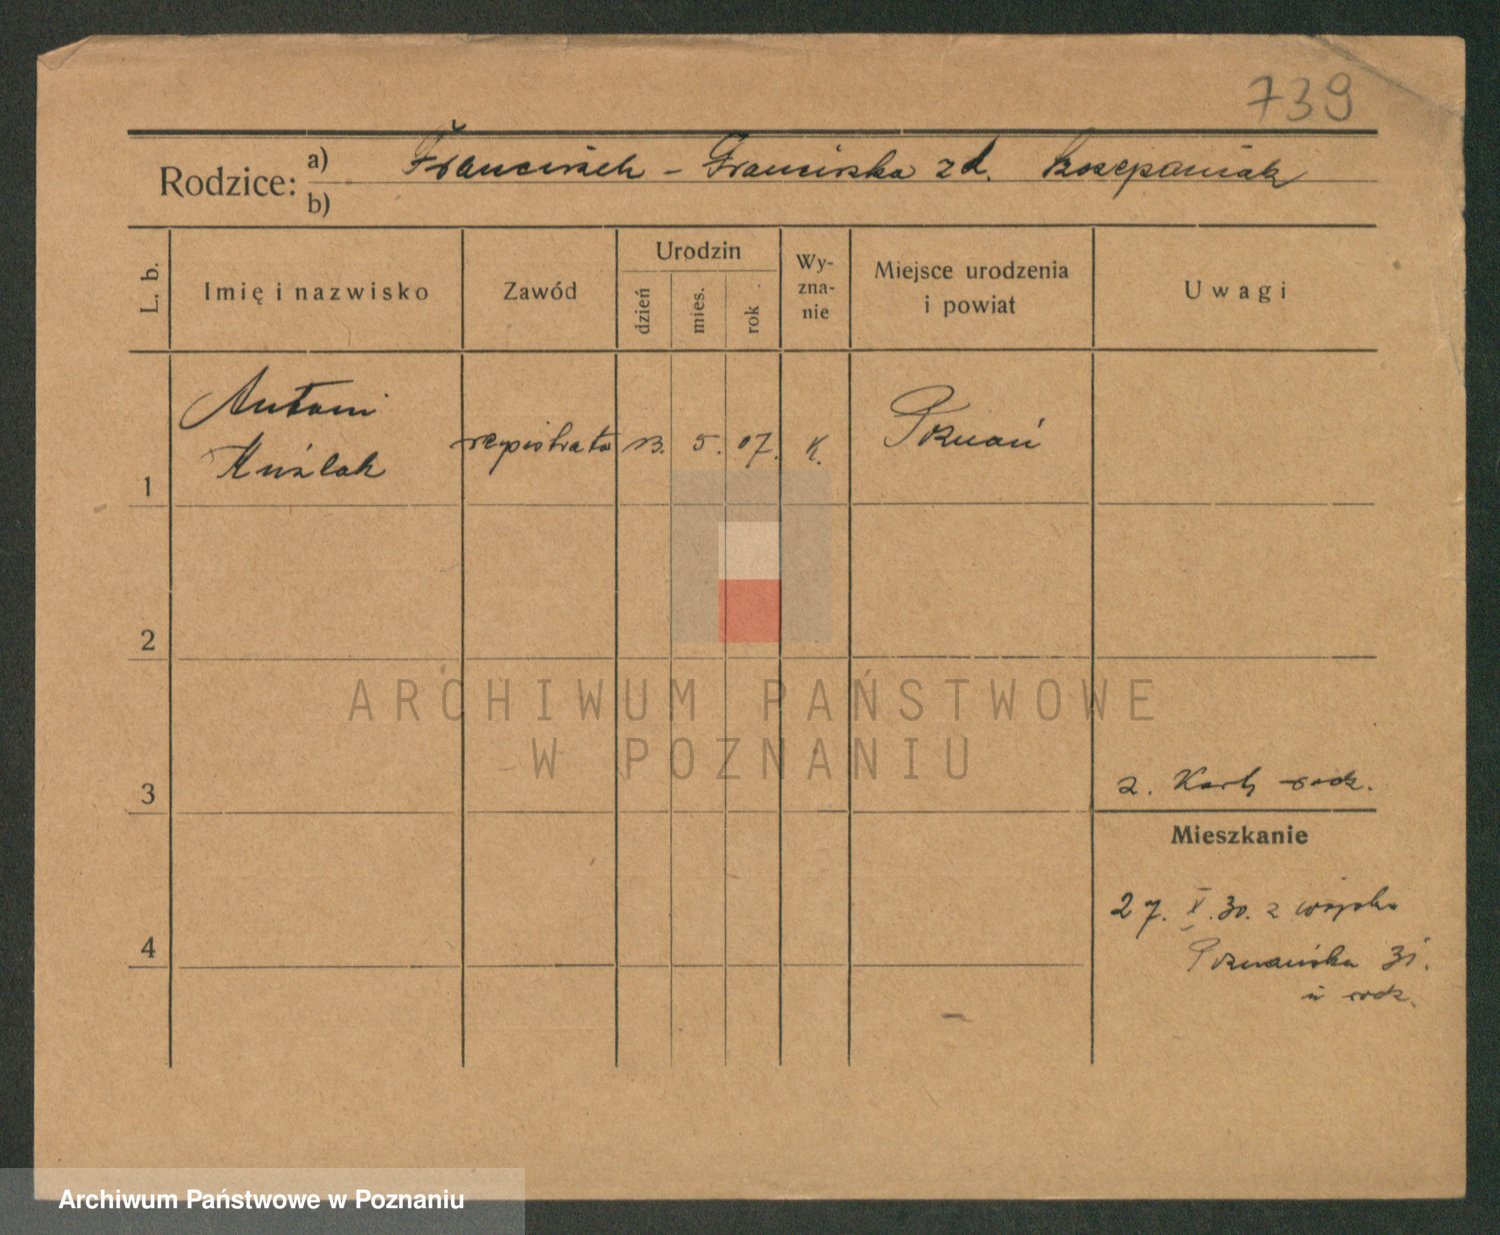 739
Rodzice: a) Franciszek – Franciszka zd. Szczepaniak
b)
L. b.
Imię i nazwisko
Zawód
Urodzin
dzień
mies.
rok
Wy-
zna-
nie
Miejsce urodzenia
i powiat
Uwagi
Antoni
Kuźlak
registrator
13. 5. 07. K.
Poznań
1
2
ARCHIWUM PAŃSTWOWE
W POZNANIU
3
z. Karty rodz.
Mieszkanie
27. X. 30. z wojska
Poznańska 31.
u rodz.
4
Archiwum Państwowe w Poznaniu